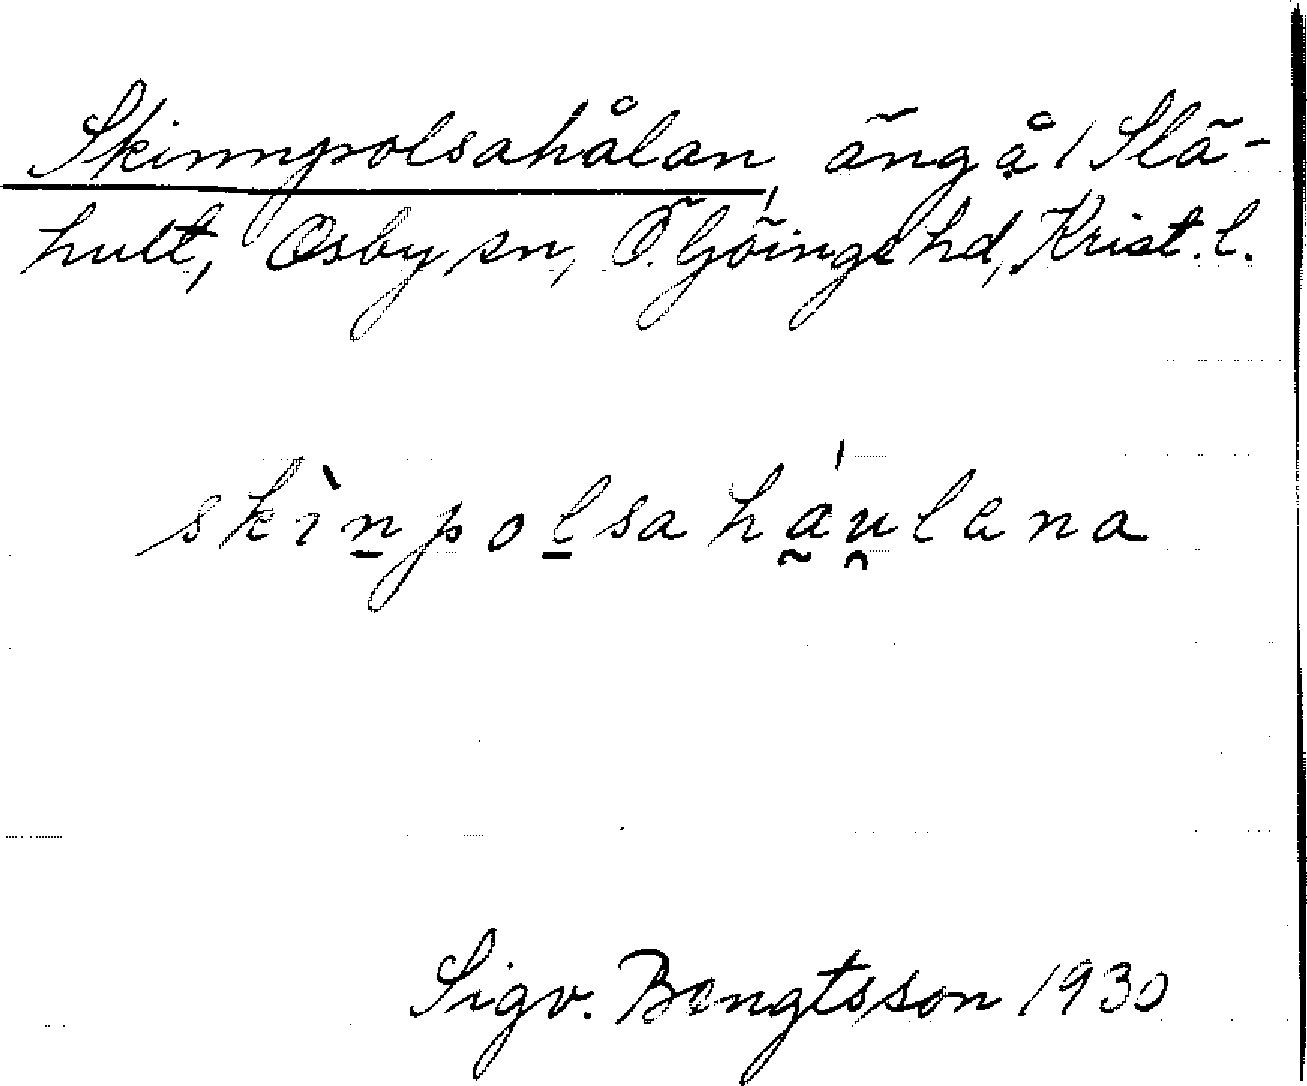 Skinnpolsahålan, äng å 1 Slä-
hult, Osby sn, Ö. Göinge hd, Krist. l.
skìn̲pol̲sa há̰u̯lana
Sigv. Bengtsson 1930